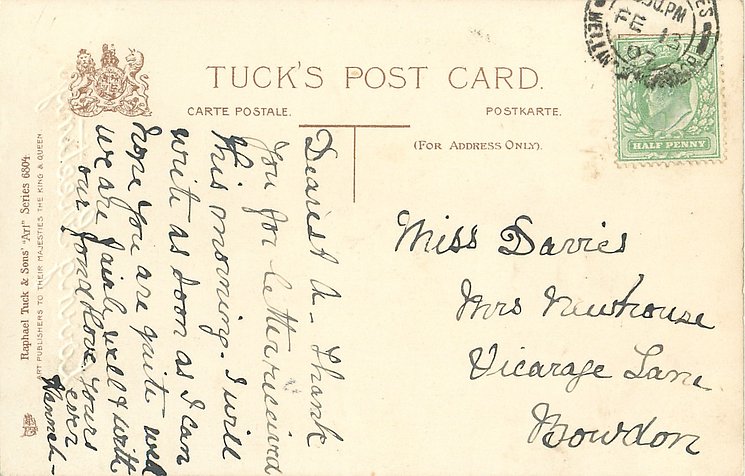 TUCK'S POST CARD.
CARTE POSTALE.
POSTKARTE.
(FOR ADDRESS ONLY).
HALF PENNY
PM
FE 13
07
Raphael Tuck & Sons' "Art" Series 6804.
ART PUBLISHERS TO THEIR MAJESTIES THE KING & QUEEN.
Dearest A - Thank
you for letter received
this morning. I will
write as soon as I can
hope you are quite well
we are fairly well & with
our fond love yours
ever
Hannah -
Miss Davies
Mrs Newhouse
Vicarage Lane
Bowdon